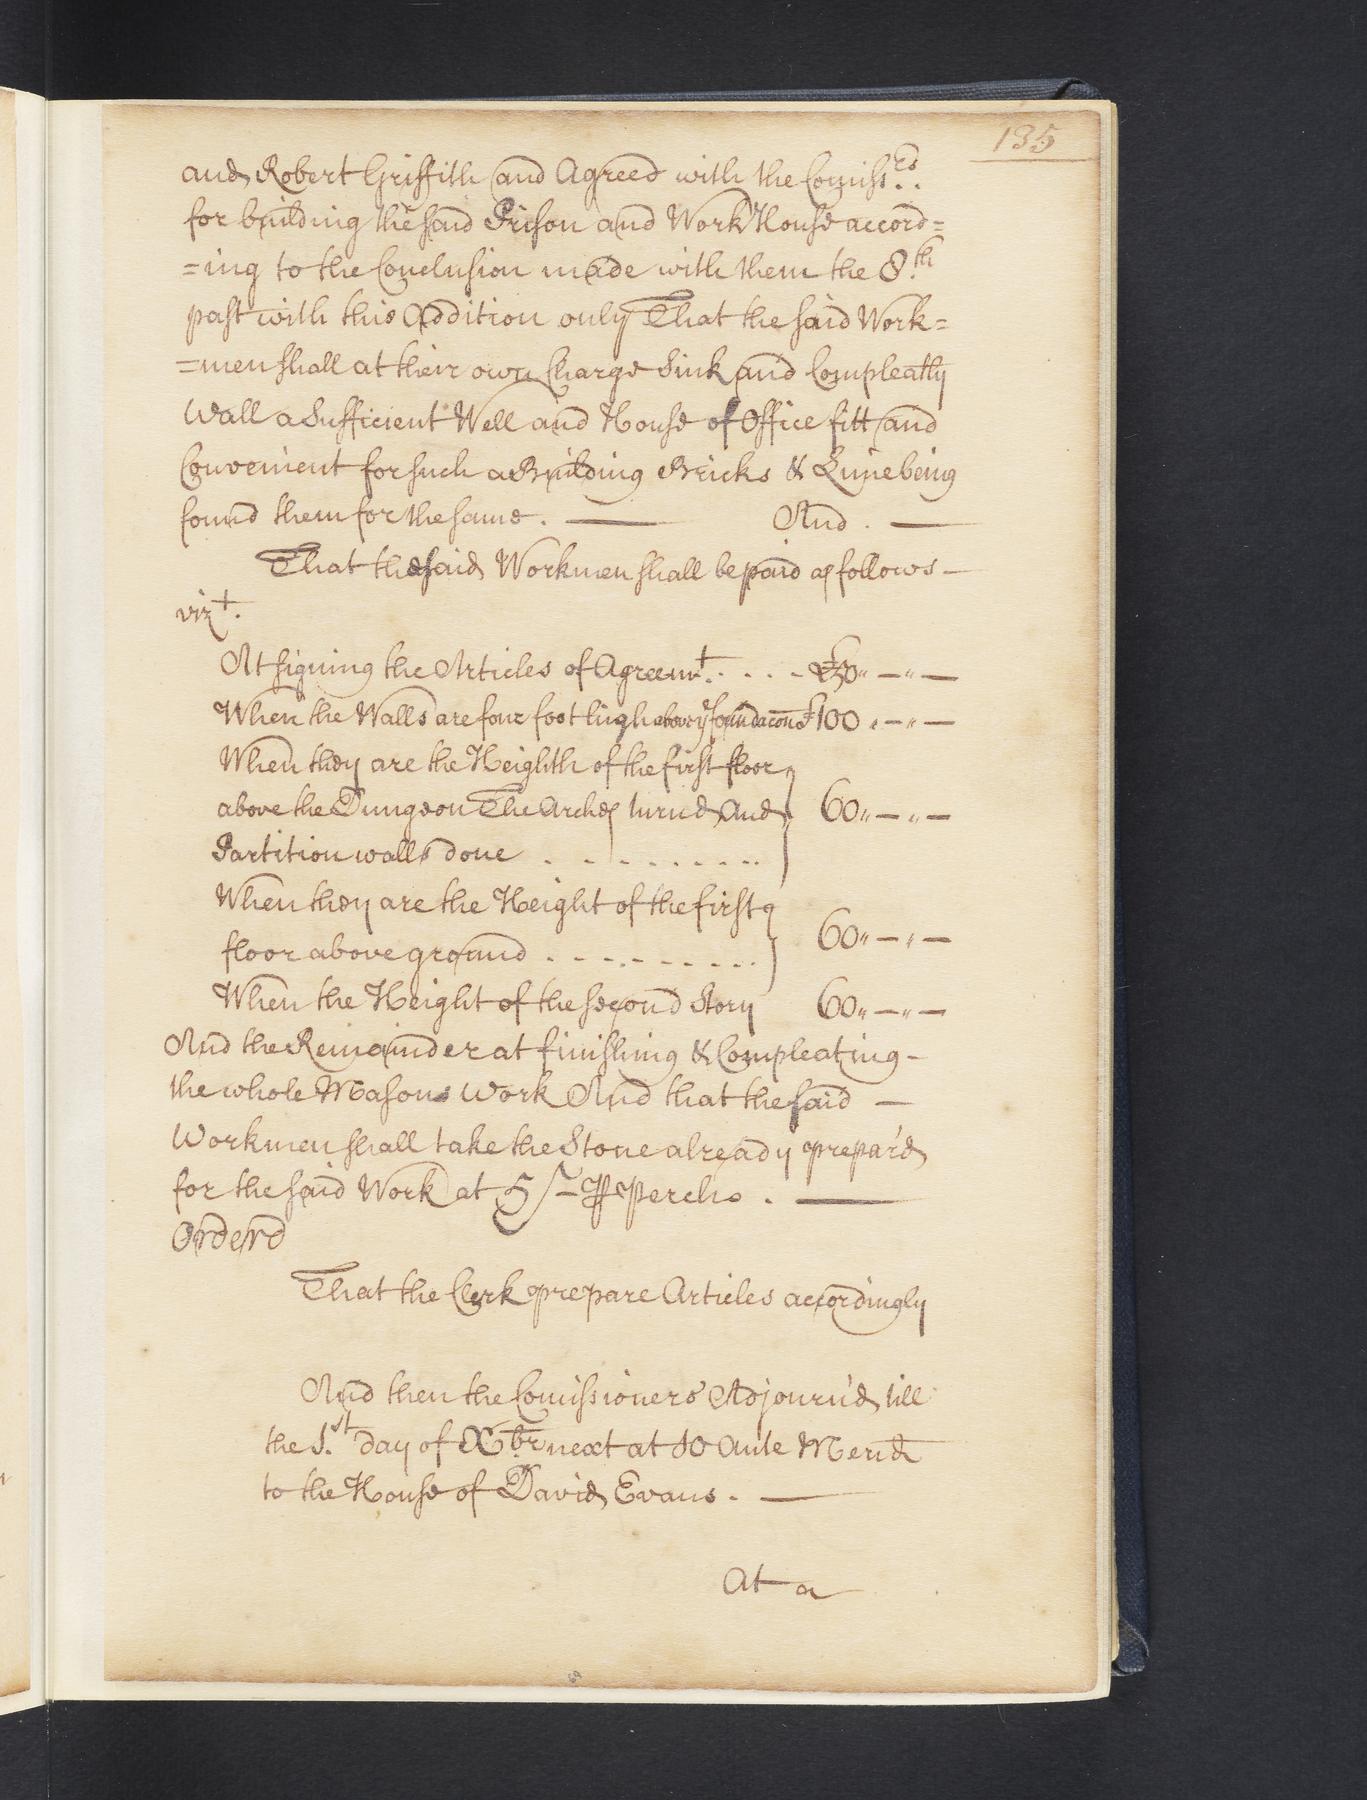 135
and Robert Griffith and Agreed with the Comiss.rs.
for building the said Prison and Work House accord=
=ing to the Conclusion made with them the 8.th
past with this Addition only That the said Work=
=men shall at their own Charge Sink and Compleatly
Wall a Sufficient Well and House of Office fitt and
Convenient for such a Building Bricks & Lime being
found them for the same. — And. —
That the said Workmen shall be paid as follows —
vizt.
At signing the Articles of Agreemt. . . . - £50 „ — „ —
When the Walls are four foot high above ye foundacons £100 „ — „ —
When they are the Heighth of the first floor
above the Dungeon The Arches turnd And 60 „ — „ —
Partition walls done . - - - - - - - ..
When they are the Height of the first
floor above ground . - - - - - - - . . 60 „ — „ —
When the Height of the second Story 60 „ — „ —
And the Remainder at finishing & Compleating —
the whole Masons Work And that the said —
Workmen shall take the Stone already prepar'd
for the said Work at 5/- P Perch. —
Orderd
That the Clerk prepare Articles accordingly
And then the Comissioners Adjourn'd till
the 1.st day of Xbr next at 10 Ante Merid
to the House of David Evans. —
At a